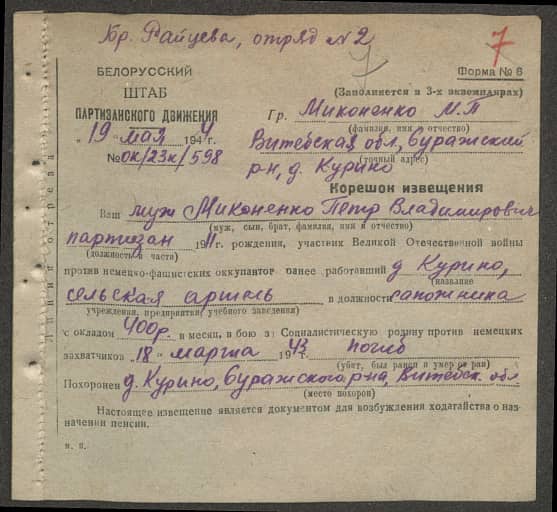 Бр. Райцева, отряд №2
7
7
БЕЛОРУССКИЙ
ШТАБ
ПАРТИЗАНСКОГО ДВИЖЕНИЯ
„19" мая 1944
№ ок/23к/598
Форма № 6
(Заполняется в 3-х экземплярах)
Гр. Миконенко М.П
(фамилия, имя и отчество)
Витебская обл, Суражский
(точный адрес)
р-н, д. Курино
Корешок извещения
Ваш муж Миконенко Петр Владимирович
(муж, сын, брат, фамилия, имя и отчество)
партизан 1911 г. рождения, участник Великой Отечественной войны
(должность и части)
против немецко-фашистских оккупантов ранее работавший д Курино,
(название
сельская артель в должности сапожника
учреждения, предприятия, учебного заведения)
с окладом 400р. в месяц, в бою за Социалистическую родину против немецких
захватчиков 18 марта 1943 погиб
(убит, был ранен и умер от ран)
Похоронен д. Курино, Суражского р-на, Витебск. обл
(место похорон)
Настоящее извещение является документом для возбуждения ходатайства о наз-
начении пенсии.
Линия отреза